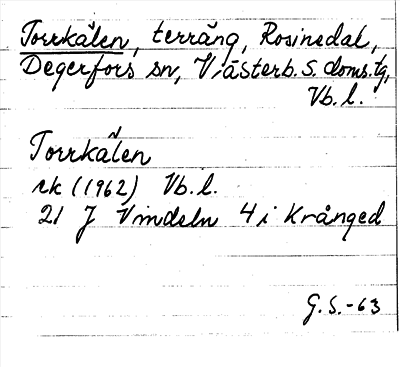 Torrkälen, terräng, Rosinedal,
Degerfors sn, Västerb. s. doms. tg,
Vb. l.
Torrkälen
rk (1962) Vb. l.
21 J Vindeln 4 i Krånged
G.S.-63